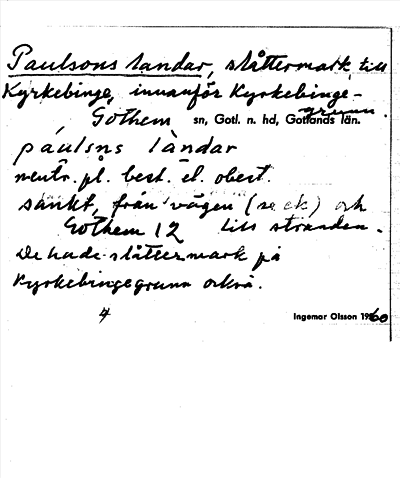 Paulsons landar, slåttermark, till
Kyrkebinge, innanför Kyrkebinge-
grunn.
Gothem sn, Gotl. n. hd, Gotlands län.
páulsns làndar
neutr. pl. best. el. obest.
sänkt, från vägen (se ek) och
Gothem 12 till stranden.
De hade slåttermark på
Kyrkebingegrunn också.
4 Ingemar Olsson 1960